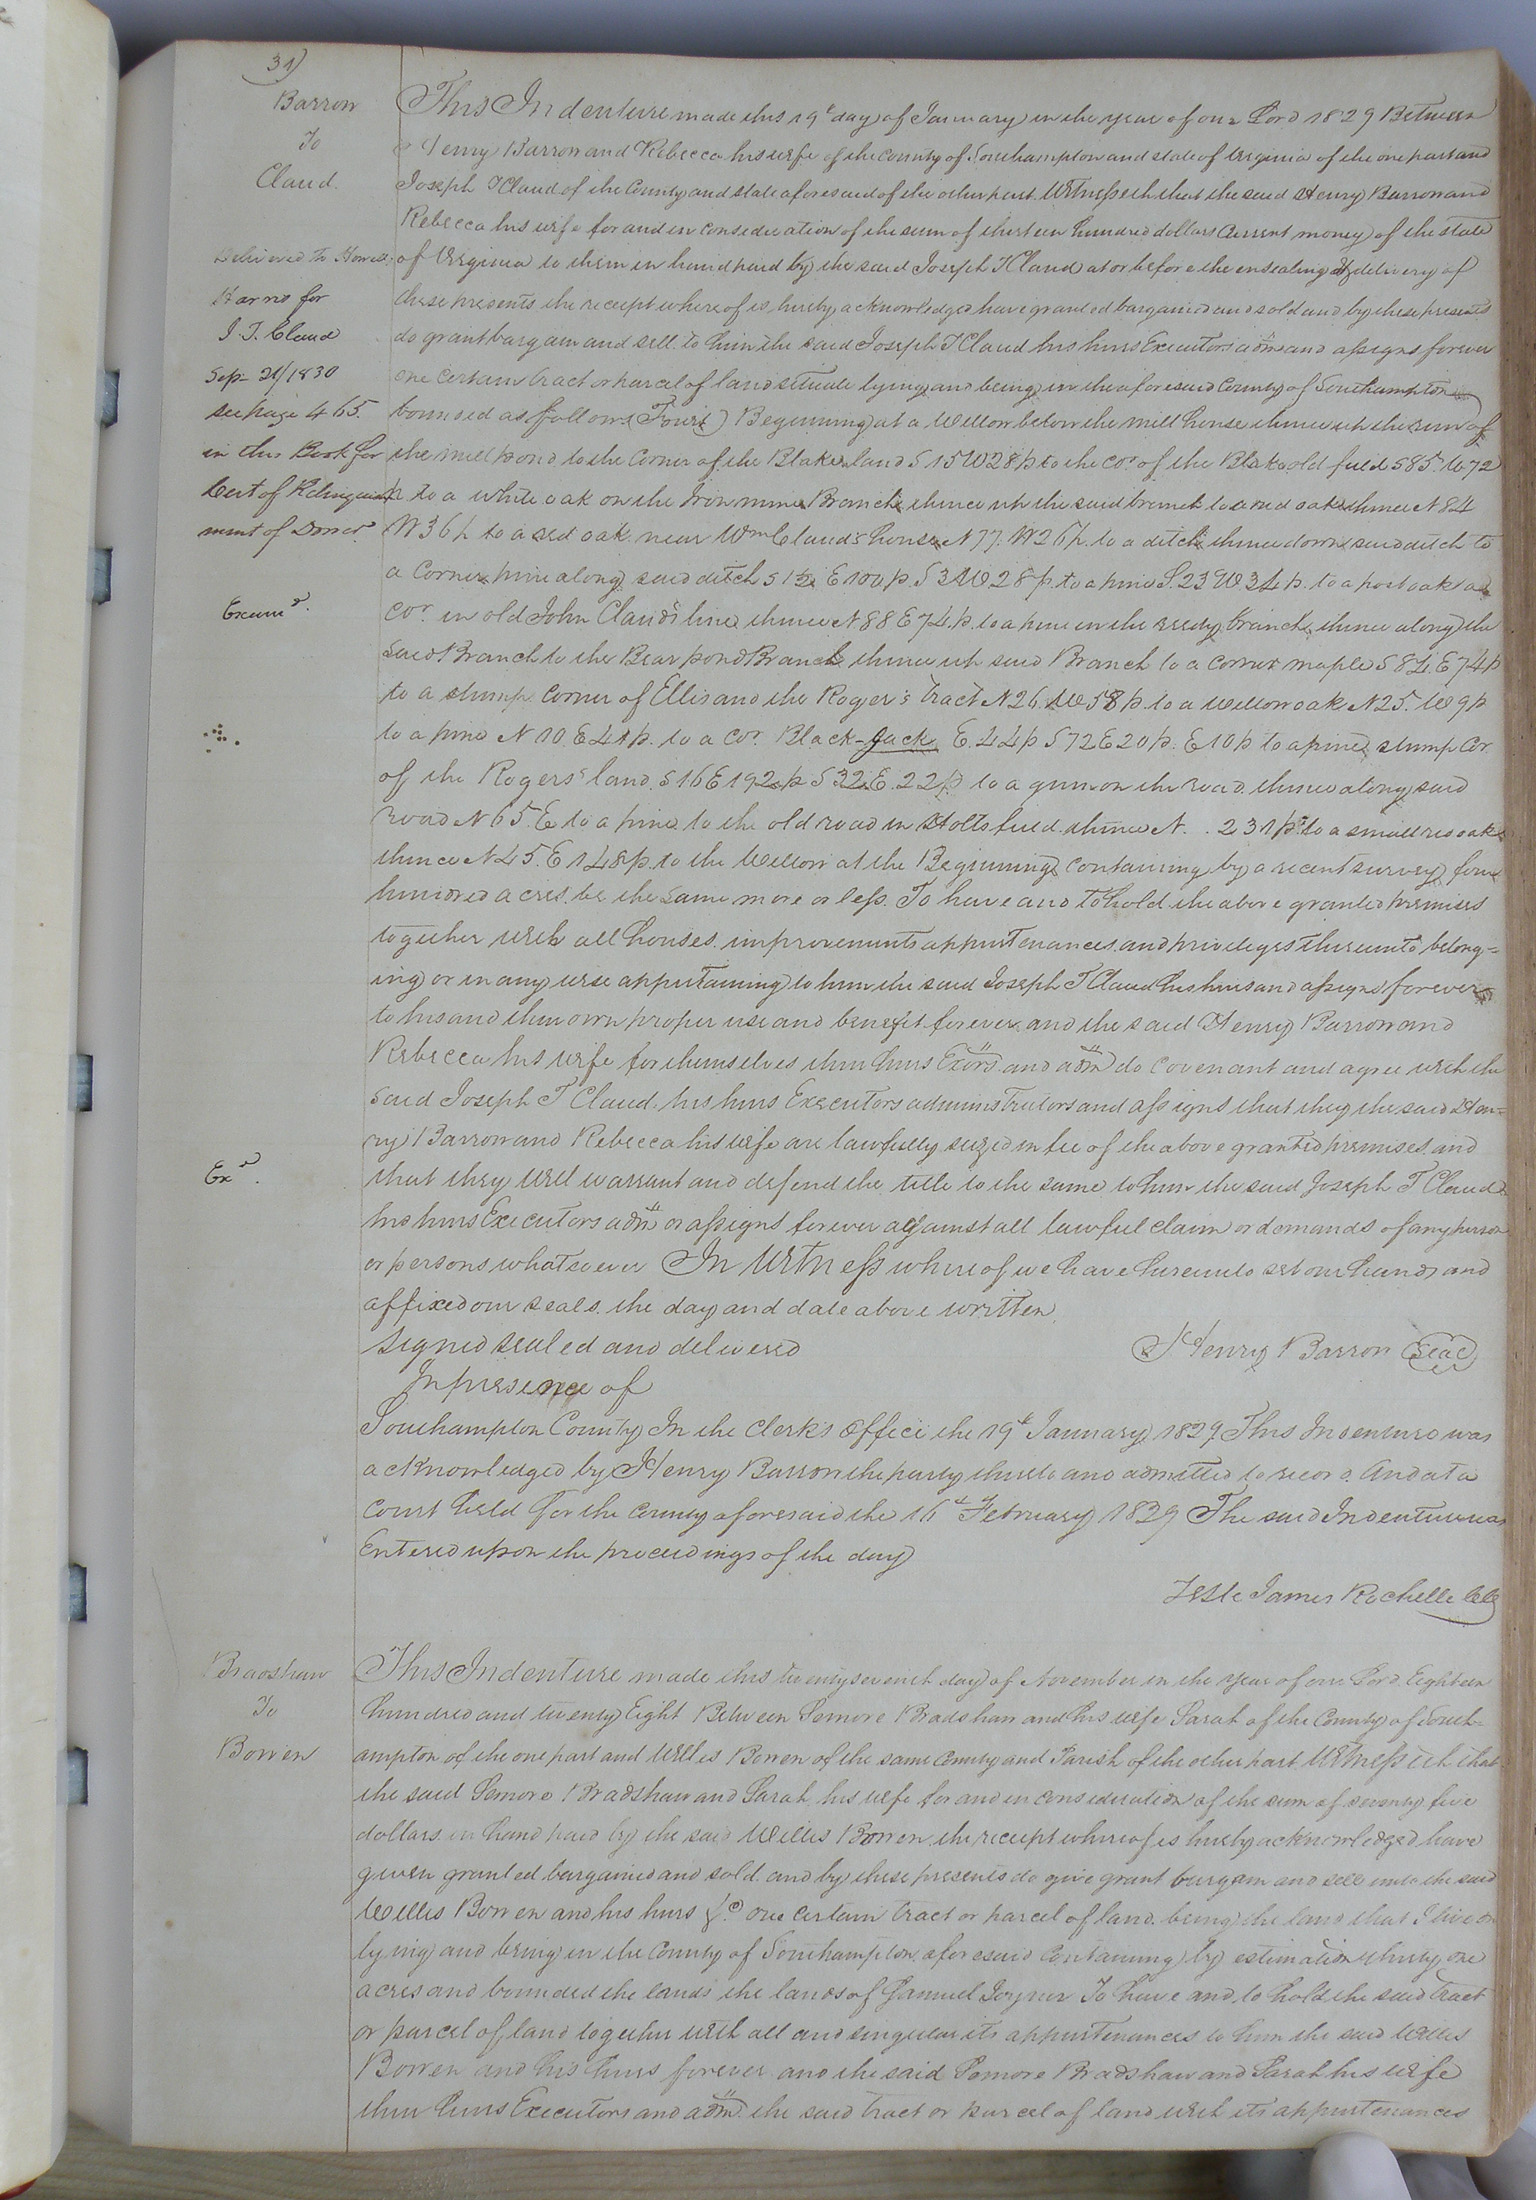 31
Barron
To
Claud.
Delivered to Howell
Harris for
J. T. Claud
Sep. 21/1830
see page 465.
in this Book for
Cert of Relinquish
ment of Dower
Exam.d
Ex.d
This Indenture made this 19th day of January in the year of our Lord 1829 Between
Henry Barron and Rebecca his wife of the County of Southampton and state of Virginia of the one part and
Joseph T Claud of the County and state aforesaid of the other part. Witnesseth that the said Henry Barron and
Rebecca his wife for and in consideration of the sum of thirteen hundred dollars Current money of the state
of Virginia to them in hand paid by the said Joseph T Claud at or before the ensealing & delivery of
these presents the receipt whereof is hereby acknowledged have granted bargained and sold and by these presents
do grant bargain and sell to him the said Joseph T Claud his heirs Executors adm.rs and assigns forever
one certain tract or parcel of land situate lying and being in the aforesaid County of Southampton
bounded as follows (Towit) Beginning at a Willow below the mill house thence up the run of
the mill pond to the Corner of the Blake land S 15 W 28 p to the cor of the Blake old field S 85. W 72
p to a white oak on the Iron mine Branch thence up the said branch to a red oak thence N 84
W 36 p to a red oak near Wm Claud's house N 77. W 26 p. to a ditch thence down said ditch to
a Corner pine along said ditch S 1½ E 100 p. S 3 W 28 p. to a pine S. 23 W. 34 p. to a post oak a
cor. in old John Claud's line thence N 88 E 74. p. to a pine in the reedy branch, thence along the
said Branch to the Bear pond Branch thence up said Branch to a corner maple S 84. E 74 p
to a stump Corner of Ellis and the Roger's tract N 26. W 58 p. to a willow oak N 25. W 9 p
to a pine N 10. E 41 p. to a cor. Black-Jack E. 44 p S 72 E 20 p. E 10 p to a pine stump Cor.
of the Rogers' land. S 16 E 192 p S 32. E. 22 p to a gum on the road. thence along said
road N 65. E to a pine to the old road in Stolts field. thence N. . 231 p. to a small red oak
thence N 45. E 148 p. to the Willow at the Beginning containing by a recent survey four
hundred acres be the same more or less. To have and to hold the above granted premises
together with all houses. improvements appurtenances. and privileges thereunto belong=
ing or in any wise appertaining to him the said Joseph T Claud his heirs and assigns forever
to his and their own proper use and benefit forever. and the said Henry Barron and
Rebecca his wife for themselves their heirs Exors. and adm.rs do covenant and agree with the
said Joseph T Claud. his heirs Executors administrators and assigns that they the said Hen=
ry Barron and Rebecca his wife are lawfully seized in fee of the above granted premises. and
that they will warrant and defend the title to the same to him the said Joseph T Claud
his heirs Executors adm.rs or assigns forever against all lawful claim or demands of any person
or persons whatsoever In Witness whereof we have hereunto set our hands and
affixed our seals. the day and date above written.
Signed sealed and delivered
Henry Barron Seal
In presence of
Southampton County In the Clerk's Office the 19th January 1829. This Indenture was
acknowledged by Henry Barron the party thereto and admitted to record. And at a
court held for the County aforesaid the 16th February 1829 The said Indenture was
Entered upon the proceedings of the day
Teste James Rochelle CC
Bradshaw
To
Bowen
This Indenture made this twenty seventh day of November in the year of our Lord Eighteen
hundred and twenty Eight Between Semore Bradshaw and his wife Sarah of the County of South=
ampton of the one part and Willis Bowen of the same County and Parish of the other part Witnesseth that
the said Semore Bradshaw and Sarah his wife for and in consideration of the sum of seventy five
dollars. in hand paid by the said Willis Bowen. the receipt whereof is hereby acknowledged have
given granted bargained and sold. and by these presents do give grant bargain and sell unto the said
Willis Bowen and his heirs &c one certain tract or parcel of land. being the land that I live on
lying and being in the County of Southampton. aforesaid containing by estimation thirty one
acres and bounded the lands the lands of Samuel Joyner To have and to hold the said tract
or parcel of land together with all and singular its appurtenances to him the said Willis
Bowen and his heirs forever and the said Semore Bradshaw and Sarah his wife
their heirs Executors and adm.rs the said tract or parcel of land with its appurtenances